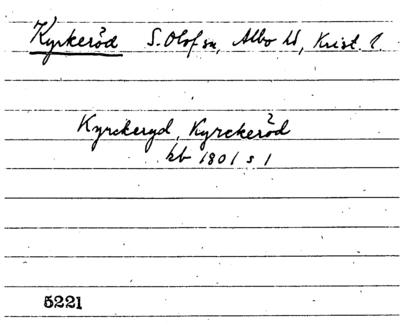 Kyrkeröd S. Olof sn, Albo hd, Krist. l.
Kyrckeryd, Kyrckerød
kb 1801 s 1
5221